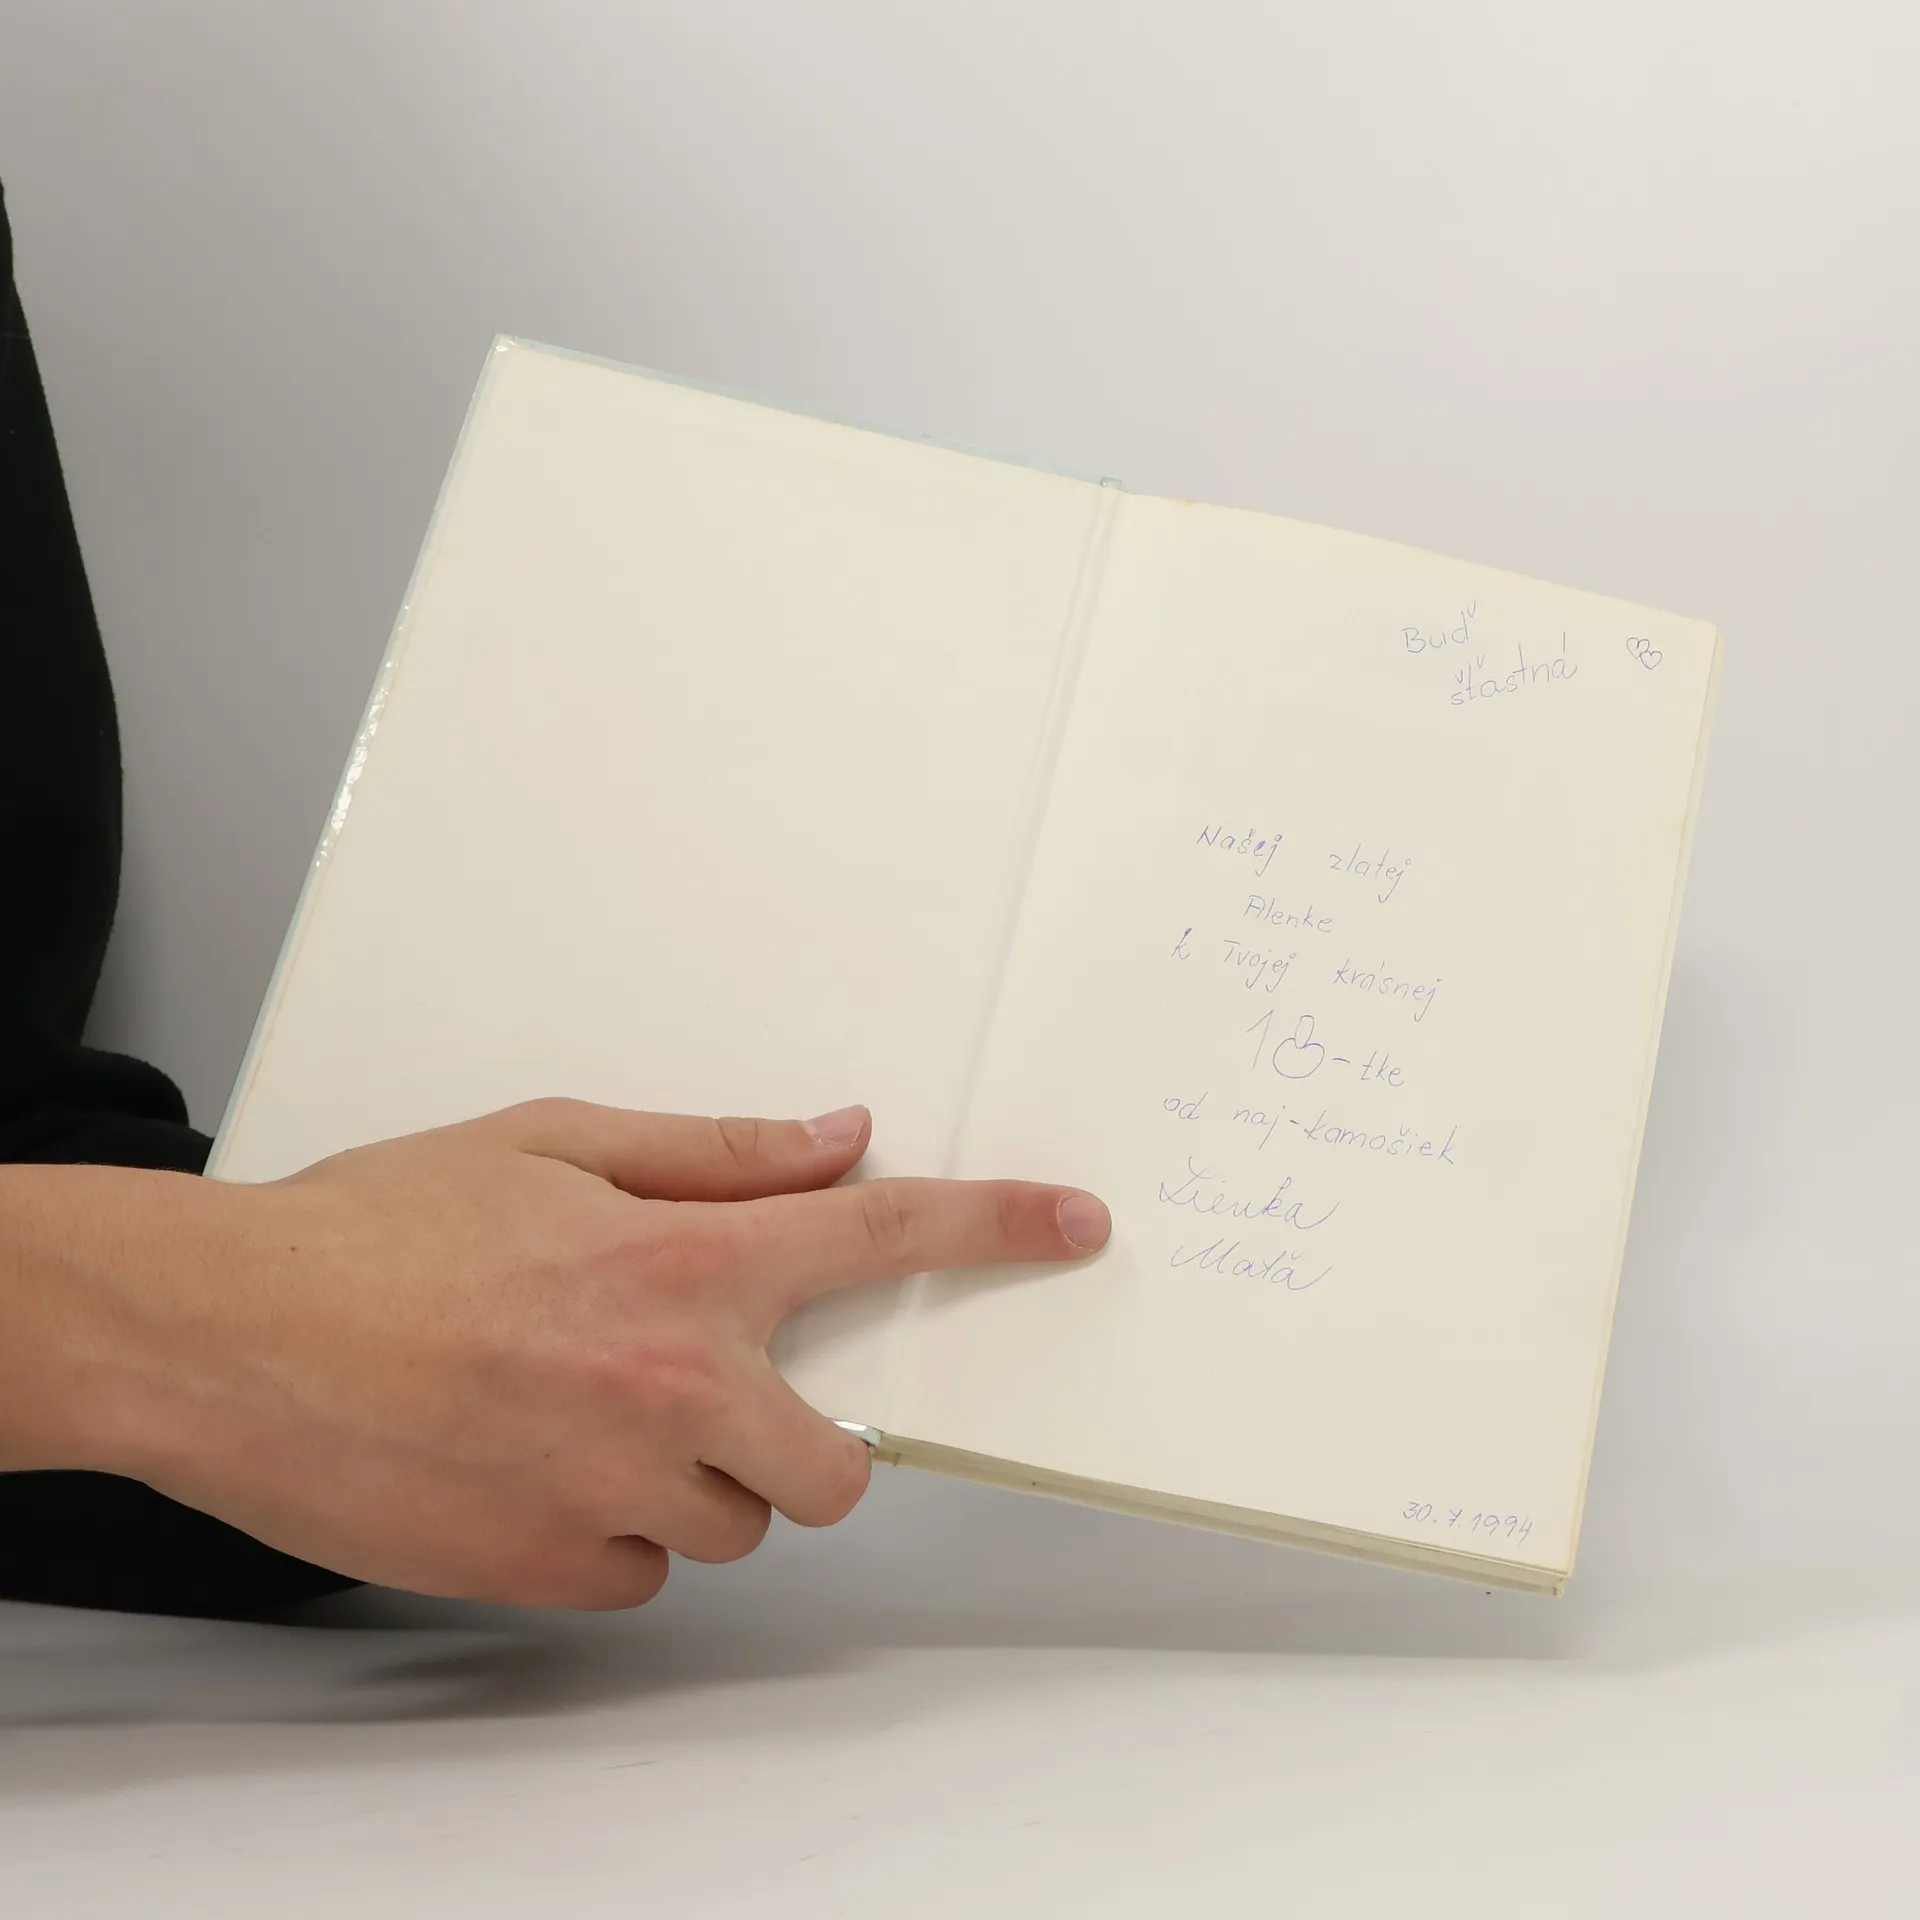 Buď
šťastná
Našej zlatej
Alenke
k Tvojej krásnej
18-tke
od naj-kamošiek
Lienka
Maťa
30.7.1994